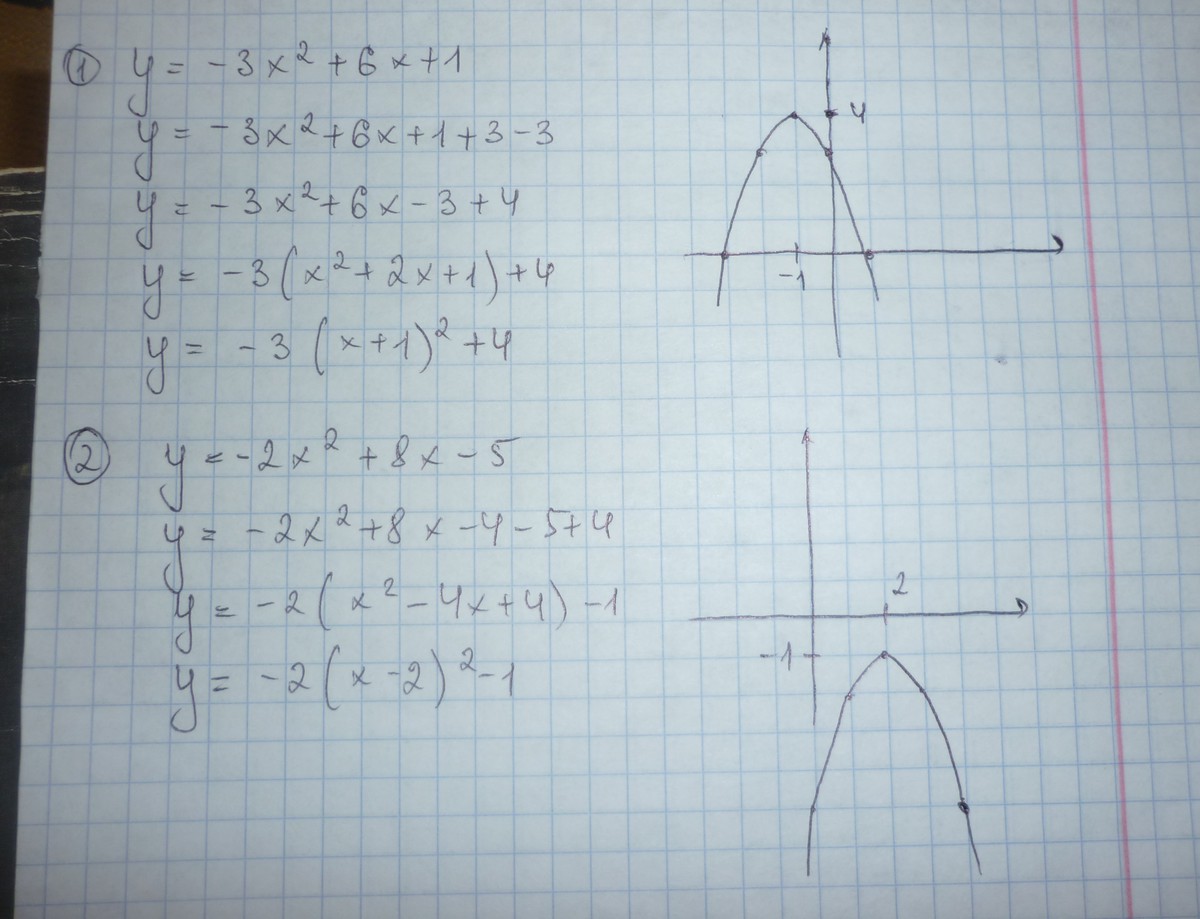 ① y = -3x² + 6x + 1
y = -3x² + 6x + 1 + 3 - 3
y = -3x² + 6x - 3 + 4
y = -3(x² + 2x + 1) + 4
y = -3(x + 1)² + 4
4
-1
② y = -2x² + 8x - 5
y = -2x² + 8x - 4 - 5 + 4
y = -2(x² - 4x + 4) - 1
y = -2(x - 2)² - 1
2
-1